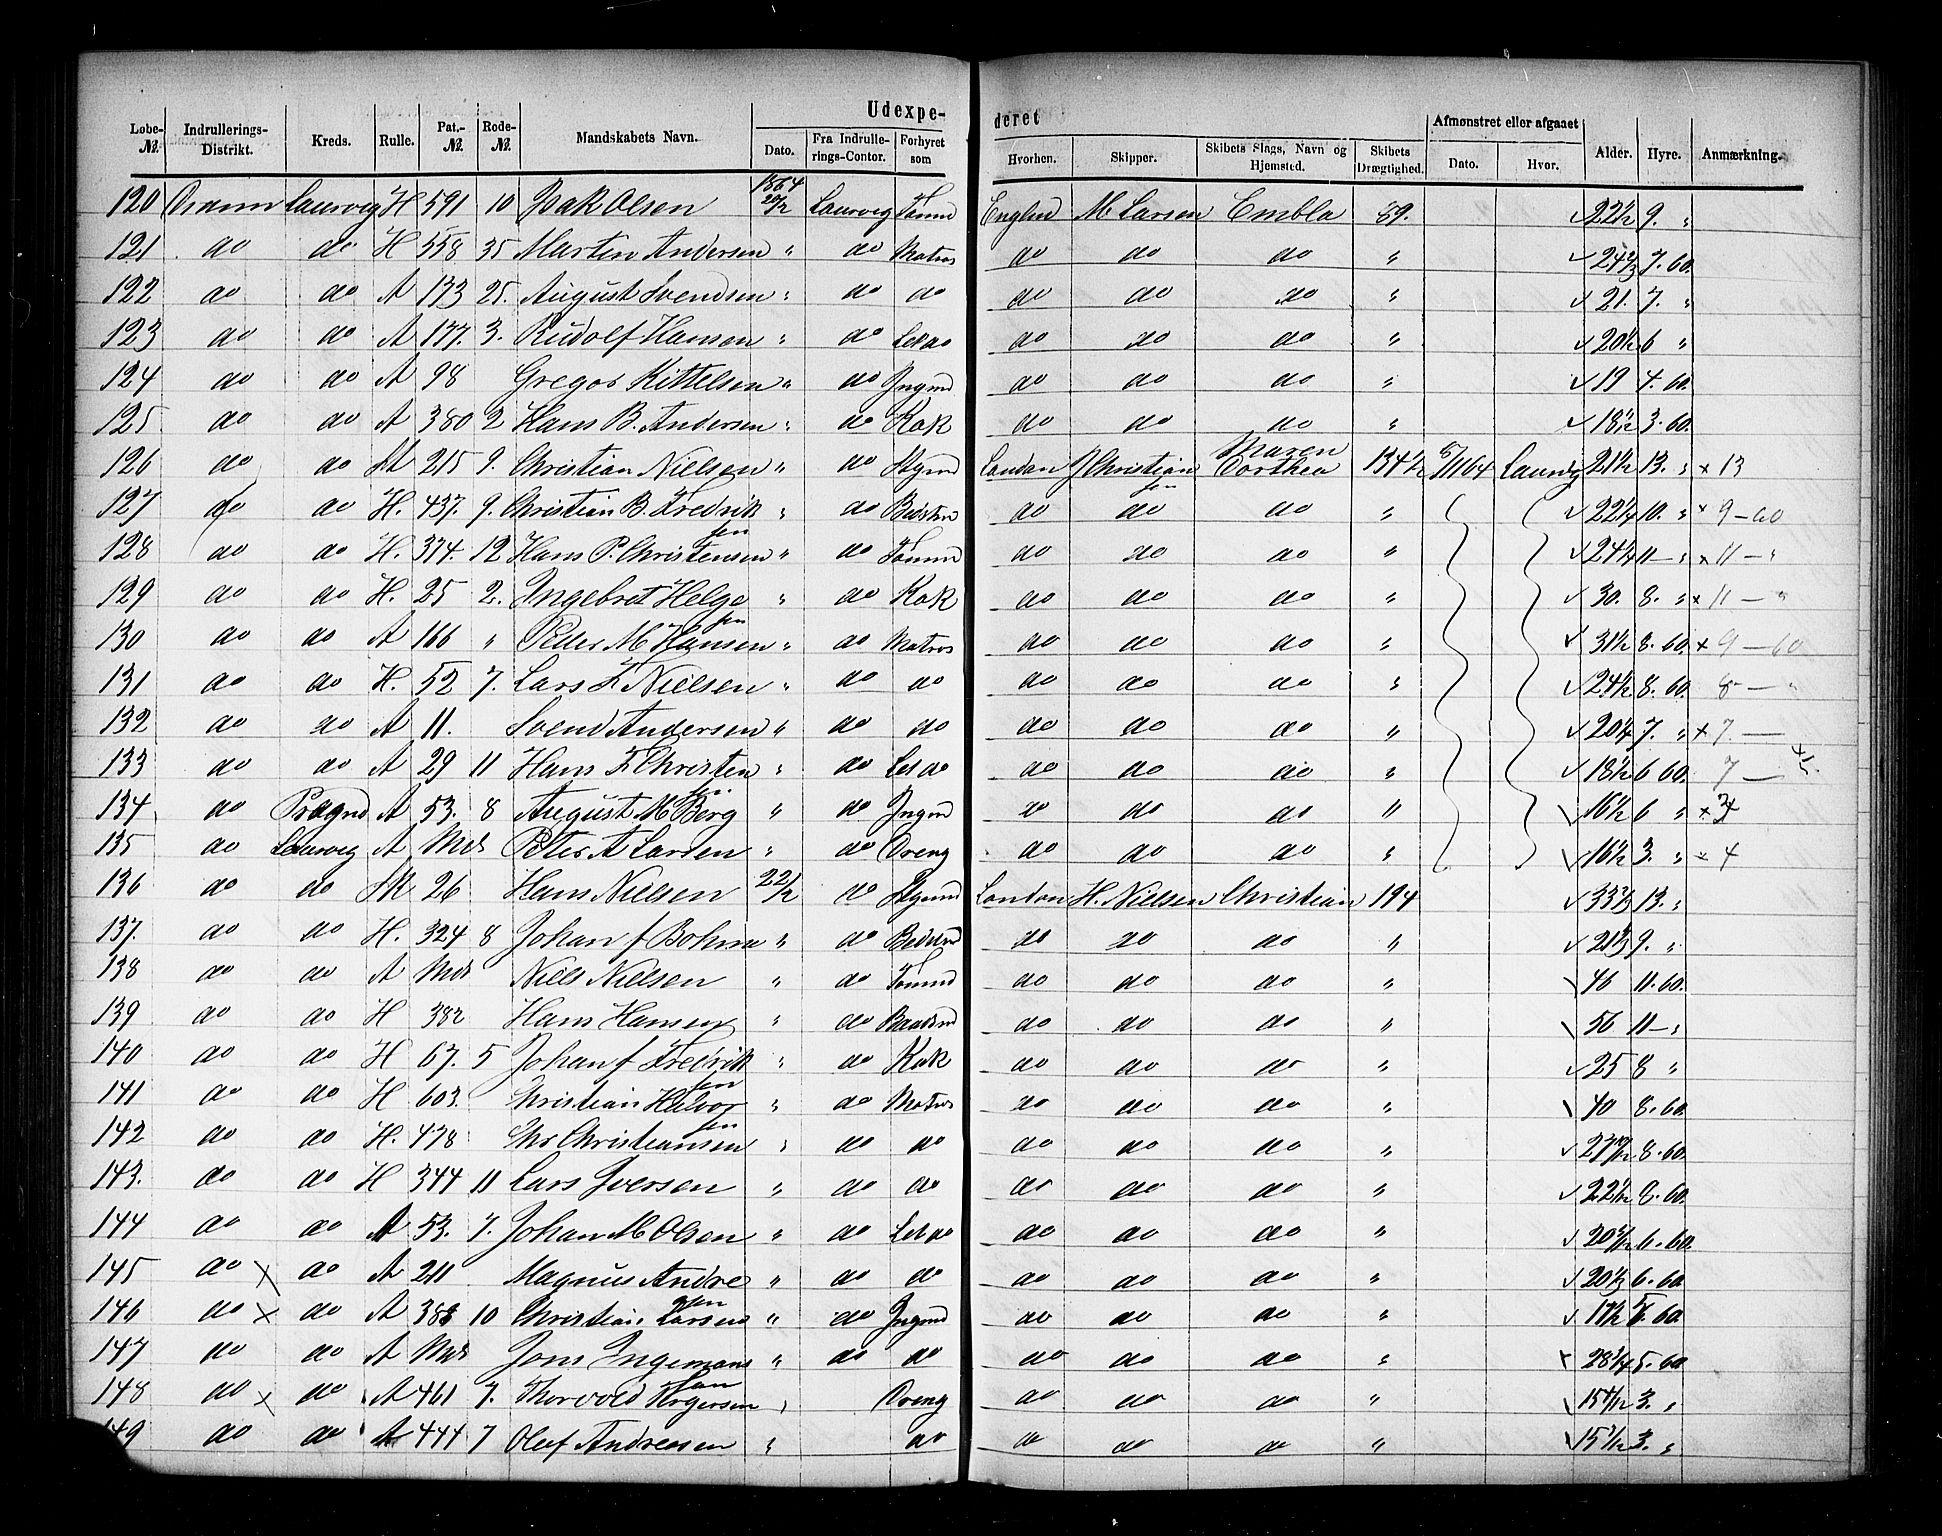 Udexpe- deret
Løbe- № Indrullerings- Distrikt. Kreds. Rulle. Pat.- № Rode- № Mandskabets Navn. Dato. Fra Indrulle- rings-Contor. Forhyret som Hvorhen. Skipper. Skibets Slags, Navn og Hjemsted. Skibets Drægtighed. Afmønstret eller afgaaet Dato. Hvor. Alder. Hyre. Anmærkning.
120 Dramn Laurvig H 591 10 Isak Olsen 1864 20/2 Laurvig Tømmd Englnd M Larsen Embla 89. 22½ 9. "
121 do do H 558 35 Martin Andersen " do Matros do do do " 24⅔ 7.60.
122 do do A 173 25. August Svendsen " do do do do do " 21. 7. "
123 do do A 177. 3. Rudolf Hansen " do Letdo do do do " 20½ 6 "
124 do do A 98 Gregor Kittelsen " do Jngmd do do do " 19 4.60.
125 do do A 380 2 Hans B. Andersen " do Kok do do do " 3.60.
126 do do 215 9. Christian Nielsen " do Stymd London J Christiansen Maren Dorthea 134½ 64 Laurvig 21½ 13. " x 13
127 do do H. 437. 9. Christian B. Fredriksen " do Bedstm do do do " 22¼ 10. " x 9-60
128 do do H. 374. 12 Hans P. Christensen " do Tømmd do do do " 24¼ 11 - " x 11 - "
129 do do H. 25 2. Ingebret Helgesen " do Kok do do do " 30. 8. " x 11 - "
130 do do A 166 " Peder M Hansen " do Matros do do do " 31½ 8.60. x 9 - 60
131 do do H. 52 7. Lars F. Nielsen " do do do do do " 24½ 8.60. 8 - "
132 do do A 11. Svend Andersen " do do do do do " 20¼ 7. " x 7 -
133 do do A 29 11 Hans F. Christensen " do Letdo do do do " 18½ 6 60. 7 -
134 do A 53. 8 August M Berg " do Jngmd do do do " 16½ 6 " x
135 do Laurvig A Mdr Peter A Larsen " do Dreng do do do " 16½ 3. " x 4
136 do do 26 Hans Nielsen 22/2 do Stymd London H. Nielsen Christian 194 33⅔ 13. "
137. do do H. 324 8 Johan f Bohm " do Bedstmd do do do " 21⅔ 9. "
138 do do A Mdr Niels Nielsen " do Tømmd do do do " 46 11.60.
139 do do H 382 Hans Hansen " do Baadsmd do do do " 56 11 - "
140 do do H 67. 5 Johan f Fredriksen " do Kok do do do " 25 8 "
141 do do H 603. Christian Halvorsen " do Matros do do do " 40 8.60.
142 do do H. 478 Chr Christiansen " do do do do do " 8.60.
143. do do H 344 11 Lars Iversen " do do do do do " 8.60.
144 do do A 53. 7. Johan M Olsen " do Letdo do do do " 6.60.
145 do x do A 211 Magnus Andresen " do do do do do " 20⅓ 6.60.
146 do x do A 10 Christian Larsen " do Jngmd do do do " 17½ 60.
147 do do A Mdr Jons Ingemansen " do do do do do " 28¼ 5.60
148 do x do A 461 7. Thorvald " Dreng do do do " 3. "
149 do do A 444 7 Oluf Andresen " do do do do " 3. "